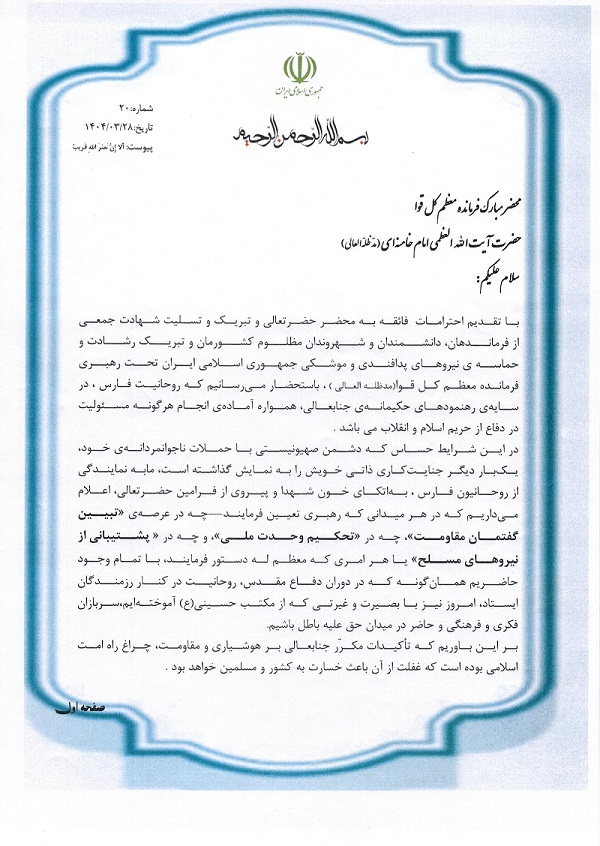 جمهوری اسلامی ایران
بسم الله الرحمن الرحیم
شماره: ۲۰
تاریخ: ۱۴۰۴/۰۳/۲۸
پیوست: ألا إنّ نصرَ اللهِ قریبٌ
محضر مبارک فرمانده معظم کل قوا
حضرت آیت الله العظمی امام خامنه‌ای (مدّظلّه‌العالی)
سلام علیکم:
با تقدیم احترامات فائقه به محضر حضرتعالی و تبریک و تسلیت شهادت جمعی
از فرماندهان، دانشمندان و شهروندان مظلوم کشورمان و تبریک رشادت و
حماسه ی نیروهای پدافندی و موشکی جمهوری اسلامی ایران تحت رهبری
فرمانده معظم کل قوا(مدظله العالی) ، باستحضار می‌رسانیم که روحانیت فارس ، در
سایه‌ی رهنمودهای حکیمانه‌ی جنابعالی، همواره آماده‌ی انجام هرگونه مسئولیت
در دفاع از حریم اسلام و انقلاب می باشد .
در این شرایط حساس که دشمن صهیونیستی با حملات ناجوانمردانه‌ی خود،
یک‌بار دیگر جنایت‌کاری ذاتی خویش را به نمایش گذاشته است، مابه نمایندگی
از روحانیون فارس ، به‌اتکای خون شهدا و پیروی از فرامین حضرتعالی، اعلام
می‌داریم که در هر میدانی که رهبری تعیین فرمایند—چه در عرصه‌ی «تبیین
گفتمان مقاومت»، چه در «تحکیم وحدت ملی»، و چه در « پشتیبانی از
نیروهای مسلح» یا هر امری که معظم له دستور فرمایند، با تمام وجود
حاضریم همان‌گونه که در دوران دفاع مقدس، روحانیت در کنار رزمندگان
ایستاد، امروز نیز با بصیرت و غیرتی که از مکتب حسینی(ع) آموخته‌ایم،سربازان
فکری و فرهنگی و حاضر در میدان حق علیه باطل باشیم.
بر این باوریم که تأکیدات مکرّر جنابعالی بر هوشیاری و مقاومت، چراغ راه امت
اسلامی بوده است که غفلت از آن باعث خسارت به کشور و مسلمین خواهد بود .
صفحه اول